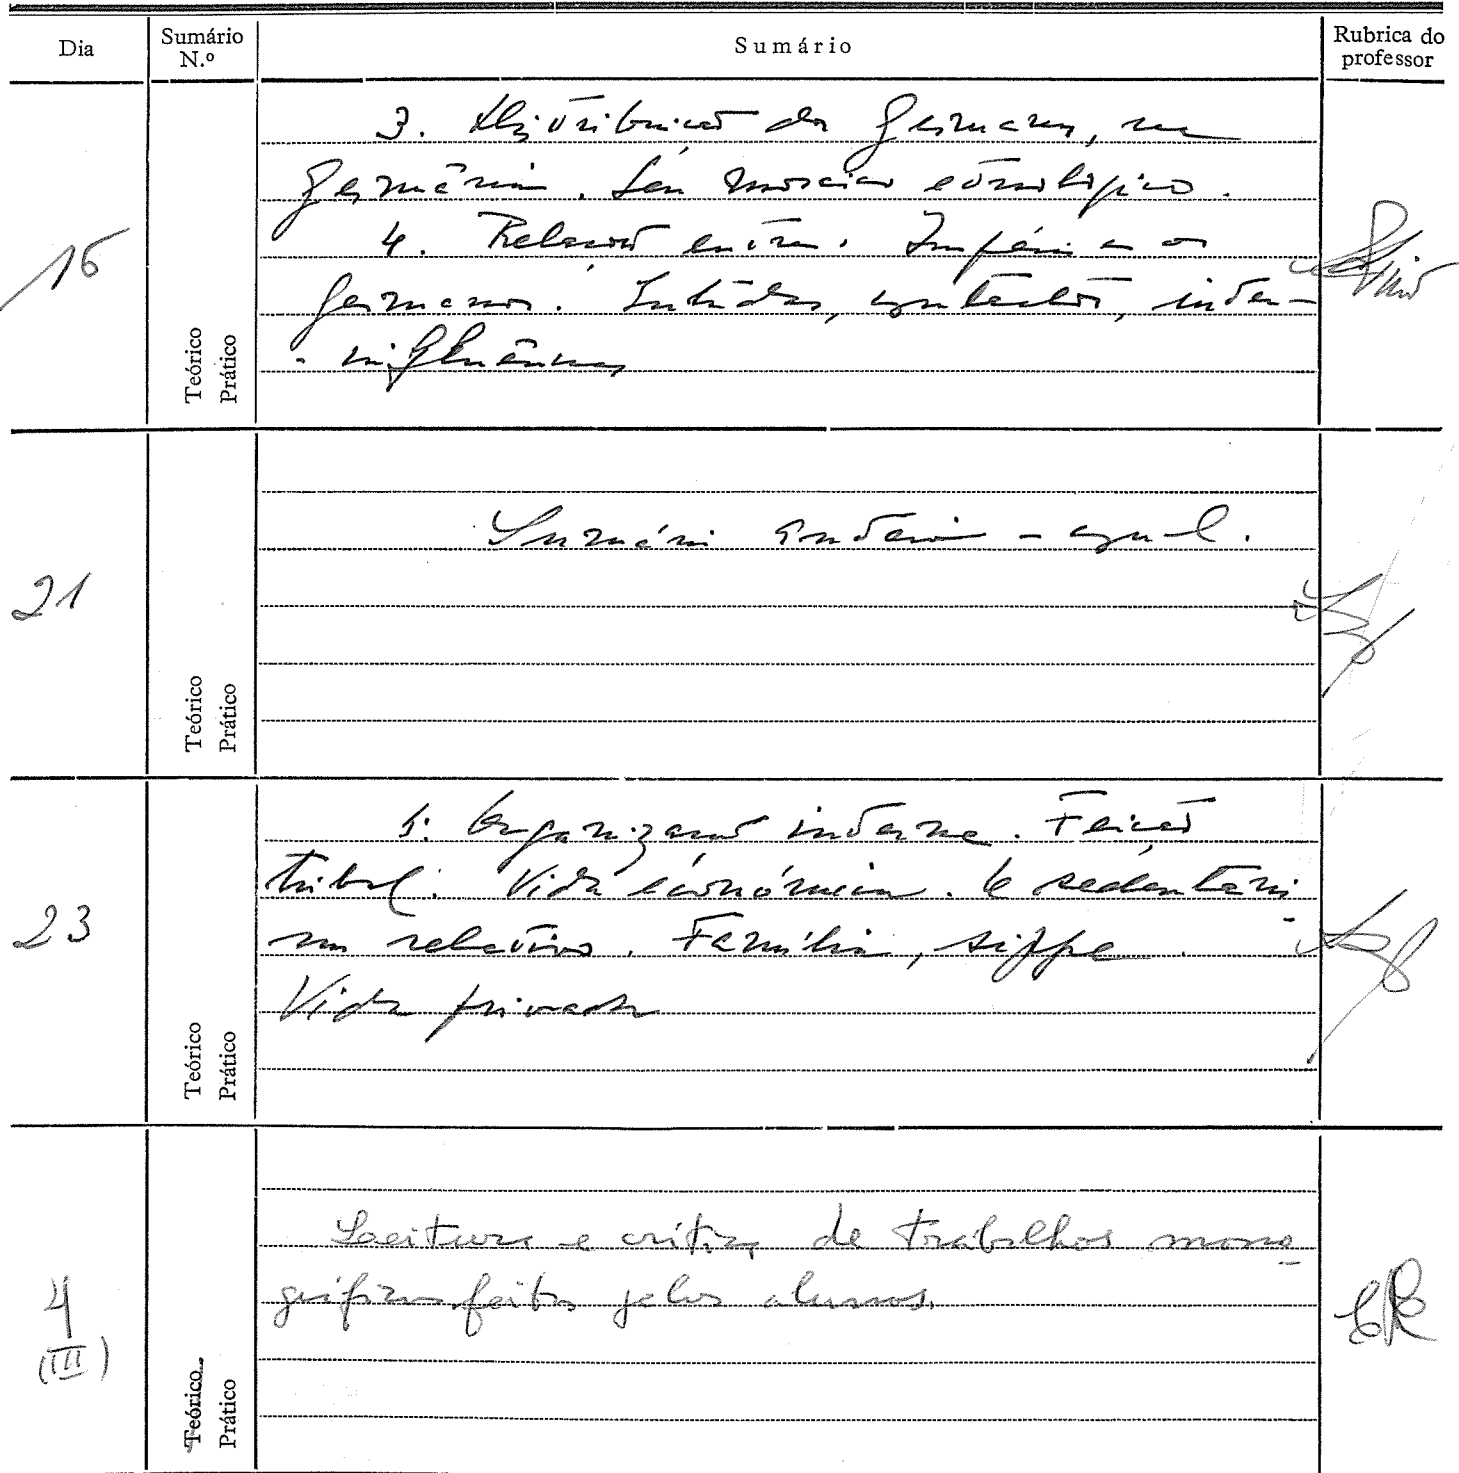 Dia
Sumário N.º
Sumário
Rubrica do professor
16
3. Distribuição dos Germanos, na
Germânia. Seu mosaico etnológico.
4. Relações entre o Império e os
germanos. Lutas, contactos, inter-
-influências
Teórico
Prático
21
Sumário anterior
Teórico
Prático
23
5. Organização interna. Feição
tribal. Vida económica. O sedentaris-
mo relativo. Família, sippe.
Vida privada
Teórico
Prático
4
(III)
Leitura e crítica de trabalhos mono-
gráficos feitos pelos alunos.
Teórico
Prático